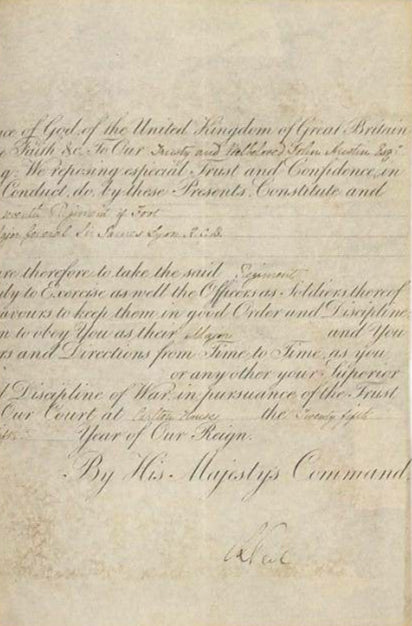 ce of God, of the United Kingdom of Great Britain
Faith &c. To Our Trusty and Welbeloved John Austin Esqr
g: We reposing especial Trust and Confidence, in
Conduct, do, by these Presents, Constitute and
Regiment of Foot
Major General Sir James Lyon K.C.B.
are therefore to take the said Regiment
ly to Exercise as well the Officers as Soldiers thereof
avours to keep them in good Order and Discipline
m to obey You as their Major and You
rs and Directions from Time to Time, as you
or any other your Superior
d Discipline of War, in pursuance of the Trust
Our Court at Carlton House the Twenty fifth
Year of Our Reign.
By His Majesty's Command,